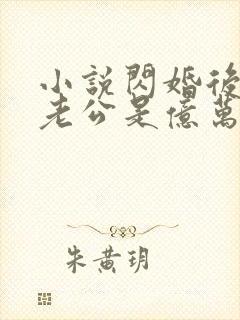 小說閃婚後
老公是億萬
朱黃玥